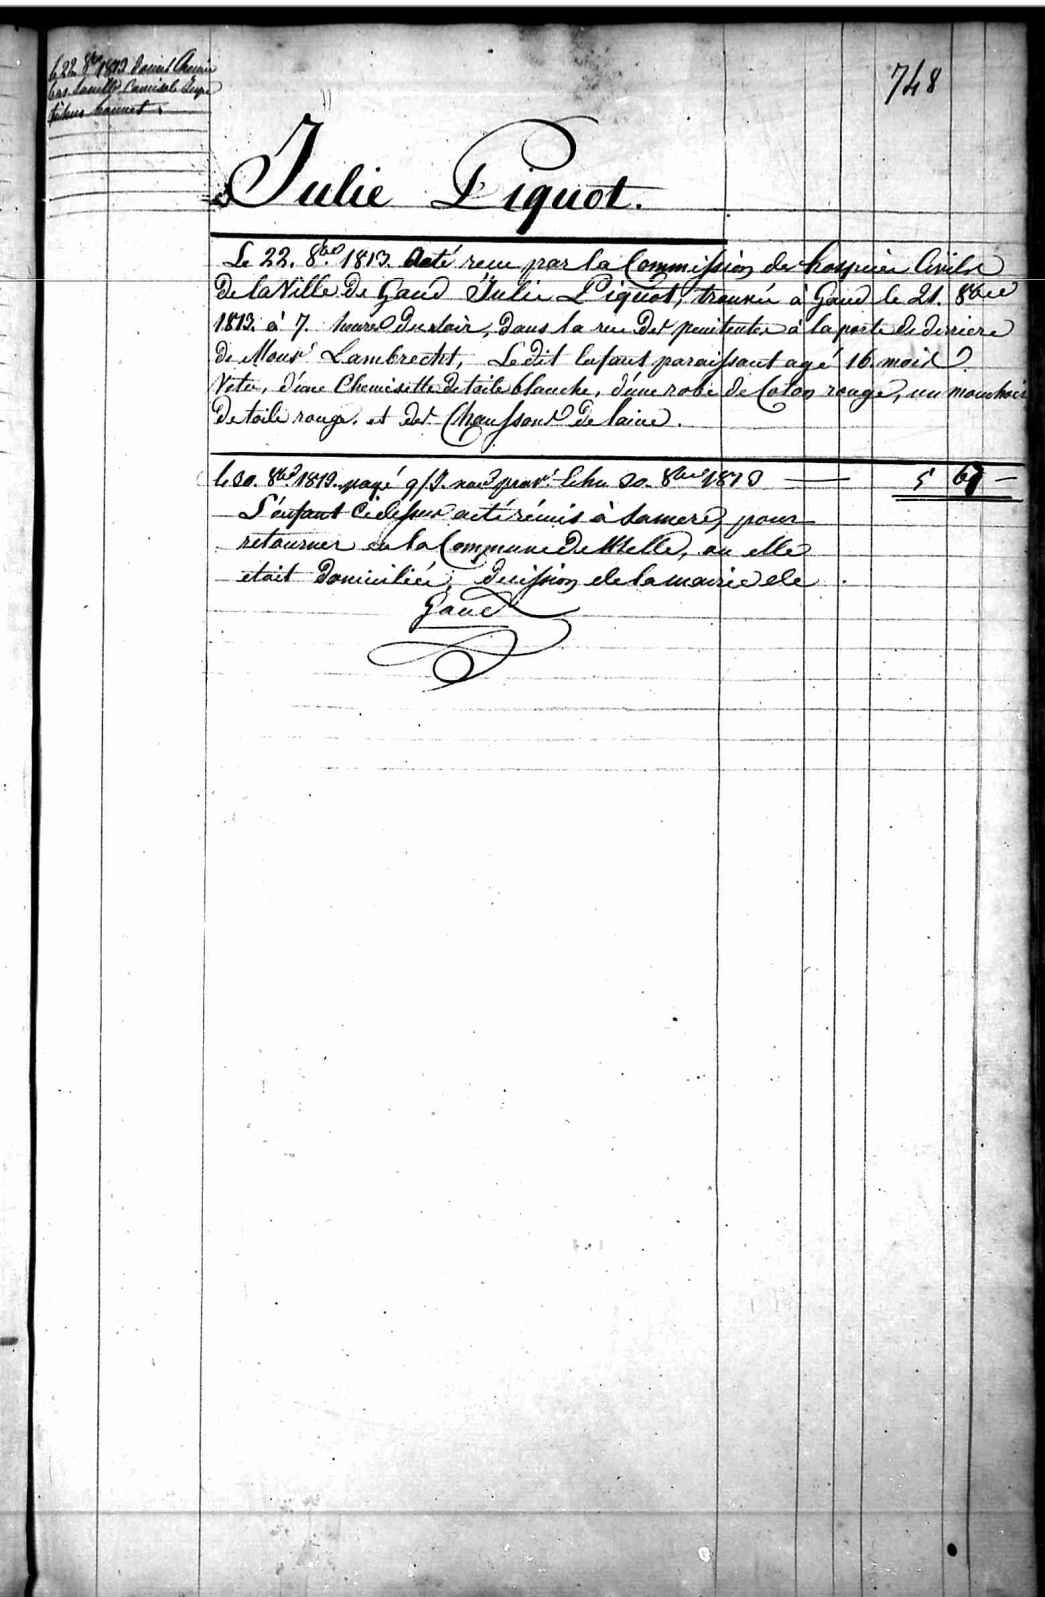 le 22 8bre 1813 donné Chemise
bas Camisole Jupe
fichus bonnet
748
Julie Piquot.
Le 22. 8bre 1813. a été recue par la Commission des hospices Civils
de la Ville de Gand Julie Piquot, trouvée à Gand le 21. 8bre
1813. à 7. heures du soir, dans la rue des penitentes à la porte de derriere
de Monsr. Lambrecht, Le dit Enfant paraissant agé 16. mois
Vetu, d'une Chemisette de toile blanche, d'une robe de Coton rouge, un mouchoir
de toile rouge, et des Chaussons de laine.
le 30. 8bre 1813. payé 9/J. prov. Echu 30. 8bre 1813 5 67 —
L'enfant ci dessus a été rémis à sa mere, pour
retourner en la Commune de Melle, ou elle
etait domiciliée, decission de la mairie de
Gand